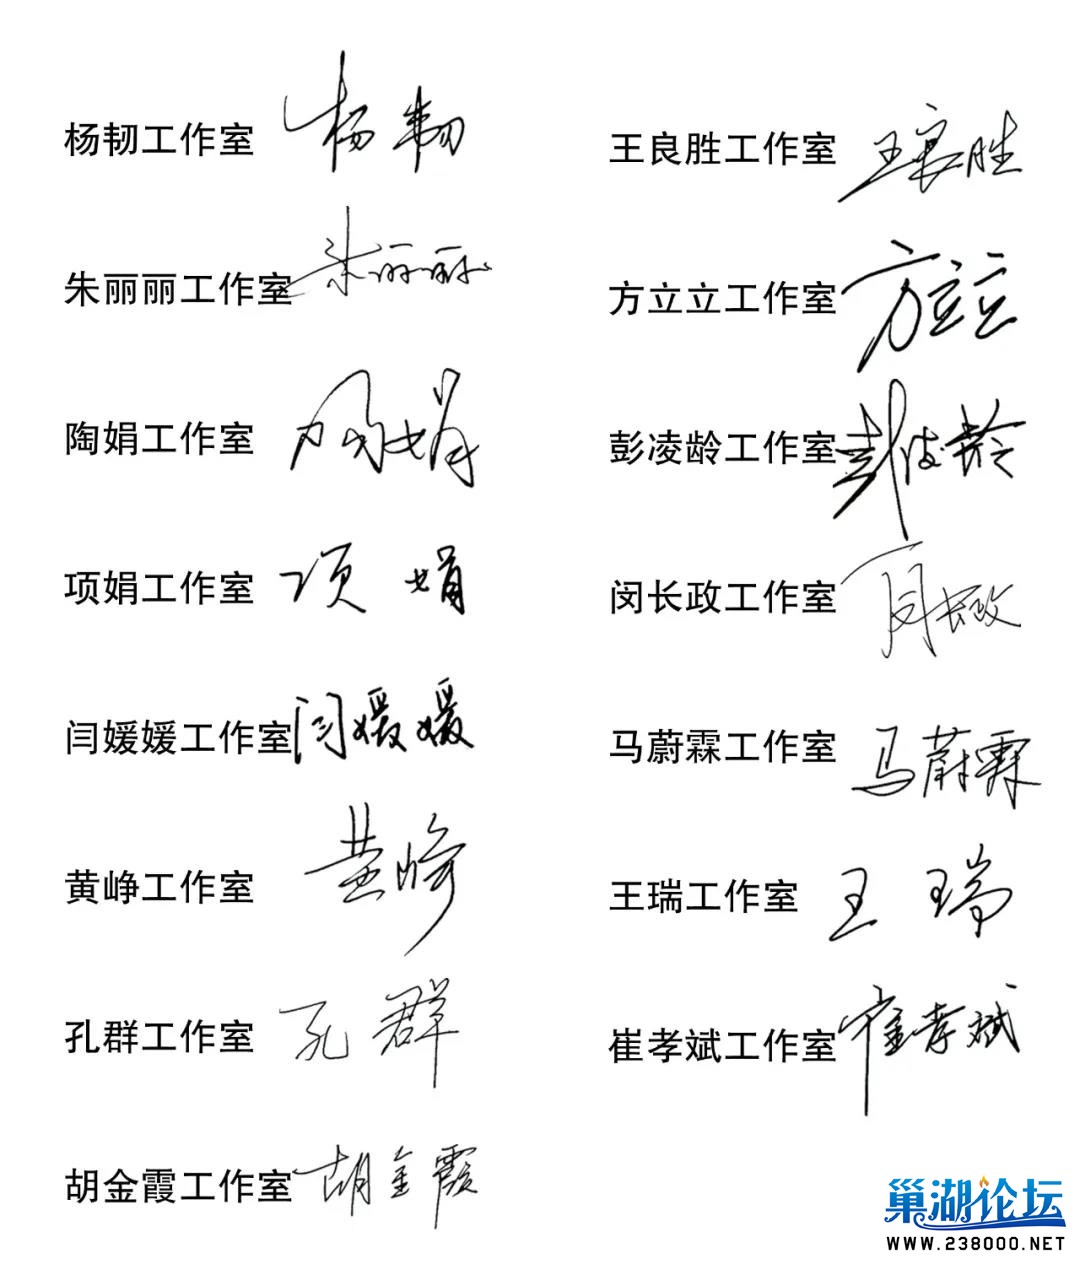 杨韧工作室 杨韧
朱丽丽工作室 朱丽丽
陶娟工作室 陶娟
项娟工作室 项娟
闫媛媛工作室 闫媛媛
黄峥工作室 黄峥
孔群工作室 孔群
胡金霞工作室 胡金霞
王良胜工作室 王良胜
方立立工作室 方立立
彭凌龄工作室 彭凌龄
闵长政工作室 闵长政
马蔚霖工作室 马蔚霖
王瑞工作室 王瑞
崔孝斌工作室 崔孝斌
巢湖论坛
WWW.238000.NET